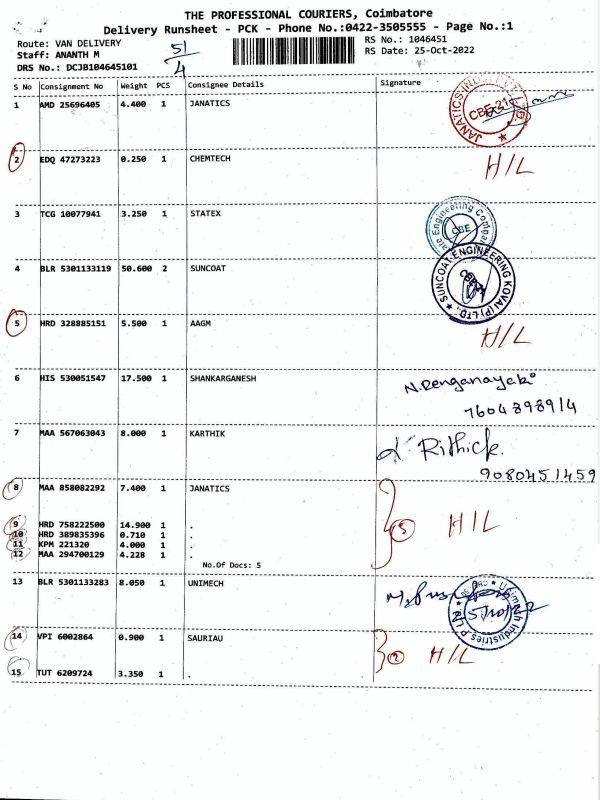 THE PROFESSIONAL COURIERS, Coimbatore
Delivery Runsheet - PCK - Phone No.:0422-3505555 - Page No.:1
Route: VAN DELIVERY
Staff: ANANTH M
DRS No.: DCJB104645101
51/4
RS No.: 1046451
RS Date: 25-Oct-2022
S No Consignment No Weight PCS Consignee Details Signature
1 AMD 25696405 4.400 1 JANATICS
CBE-21
2 EDQ 47273223 0.250 1 CHEMTECH H/L
3 TCG 10077941 3.250 1 STATEX
Engineering CBE
4 BLR 5301133119 50.600 2 SUNCOAT
SUNCOAT-ENGINEERING KOVAI (P) LTD.
5 HRD 328885151 5.500 1 AAGM H/L
6 HIS 530051547 17.500 1 SHANKARGANESH N.Renganayaki
7 MAA 567063043 8.000 1 KARTHIK Rithick.
9080451459
8 MAA 858082292 7.400 1 JANATICS
9 HRD 758222500 14.900 1 .
10 HRD 389835396 0.710 1 .
11 KPM 221320 4.000 1 .
12 MAA 294700129 4.228 1 .
5 H/L
No.Of Docs: 5
13 BLR 5301133283 8.050 1 UNIMECH
Unimech Industries P
14 VPI 6002864 0.900 1 SAURIAU
2 H/L
15 TUT 6209724 3.350 1 .